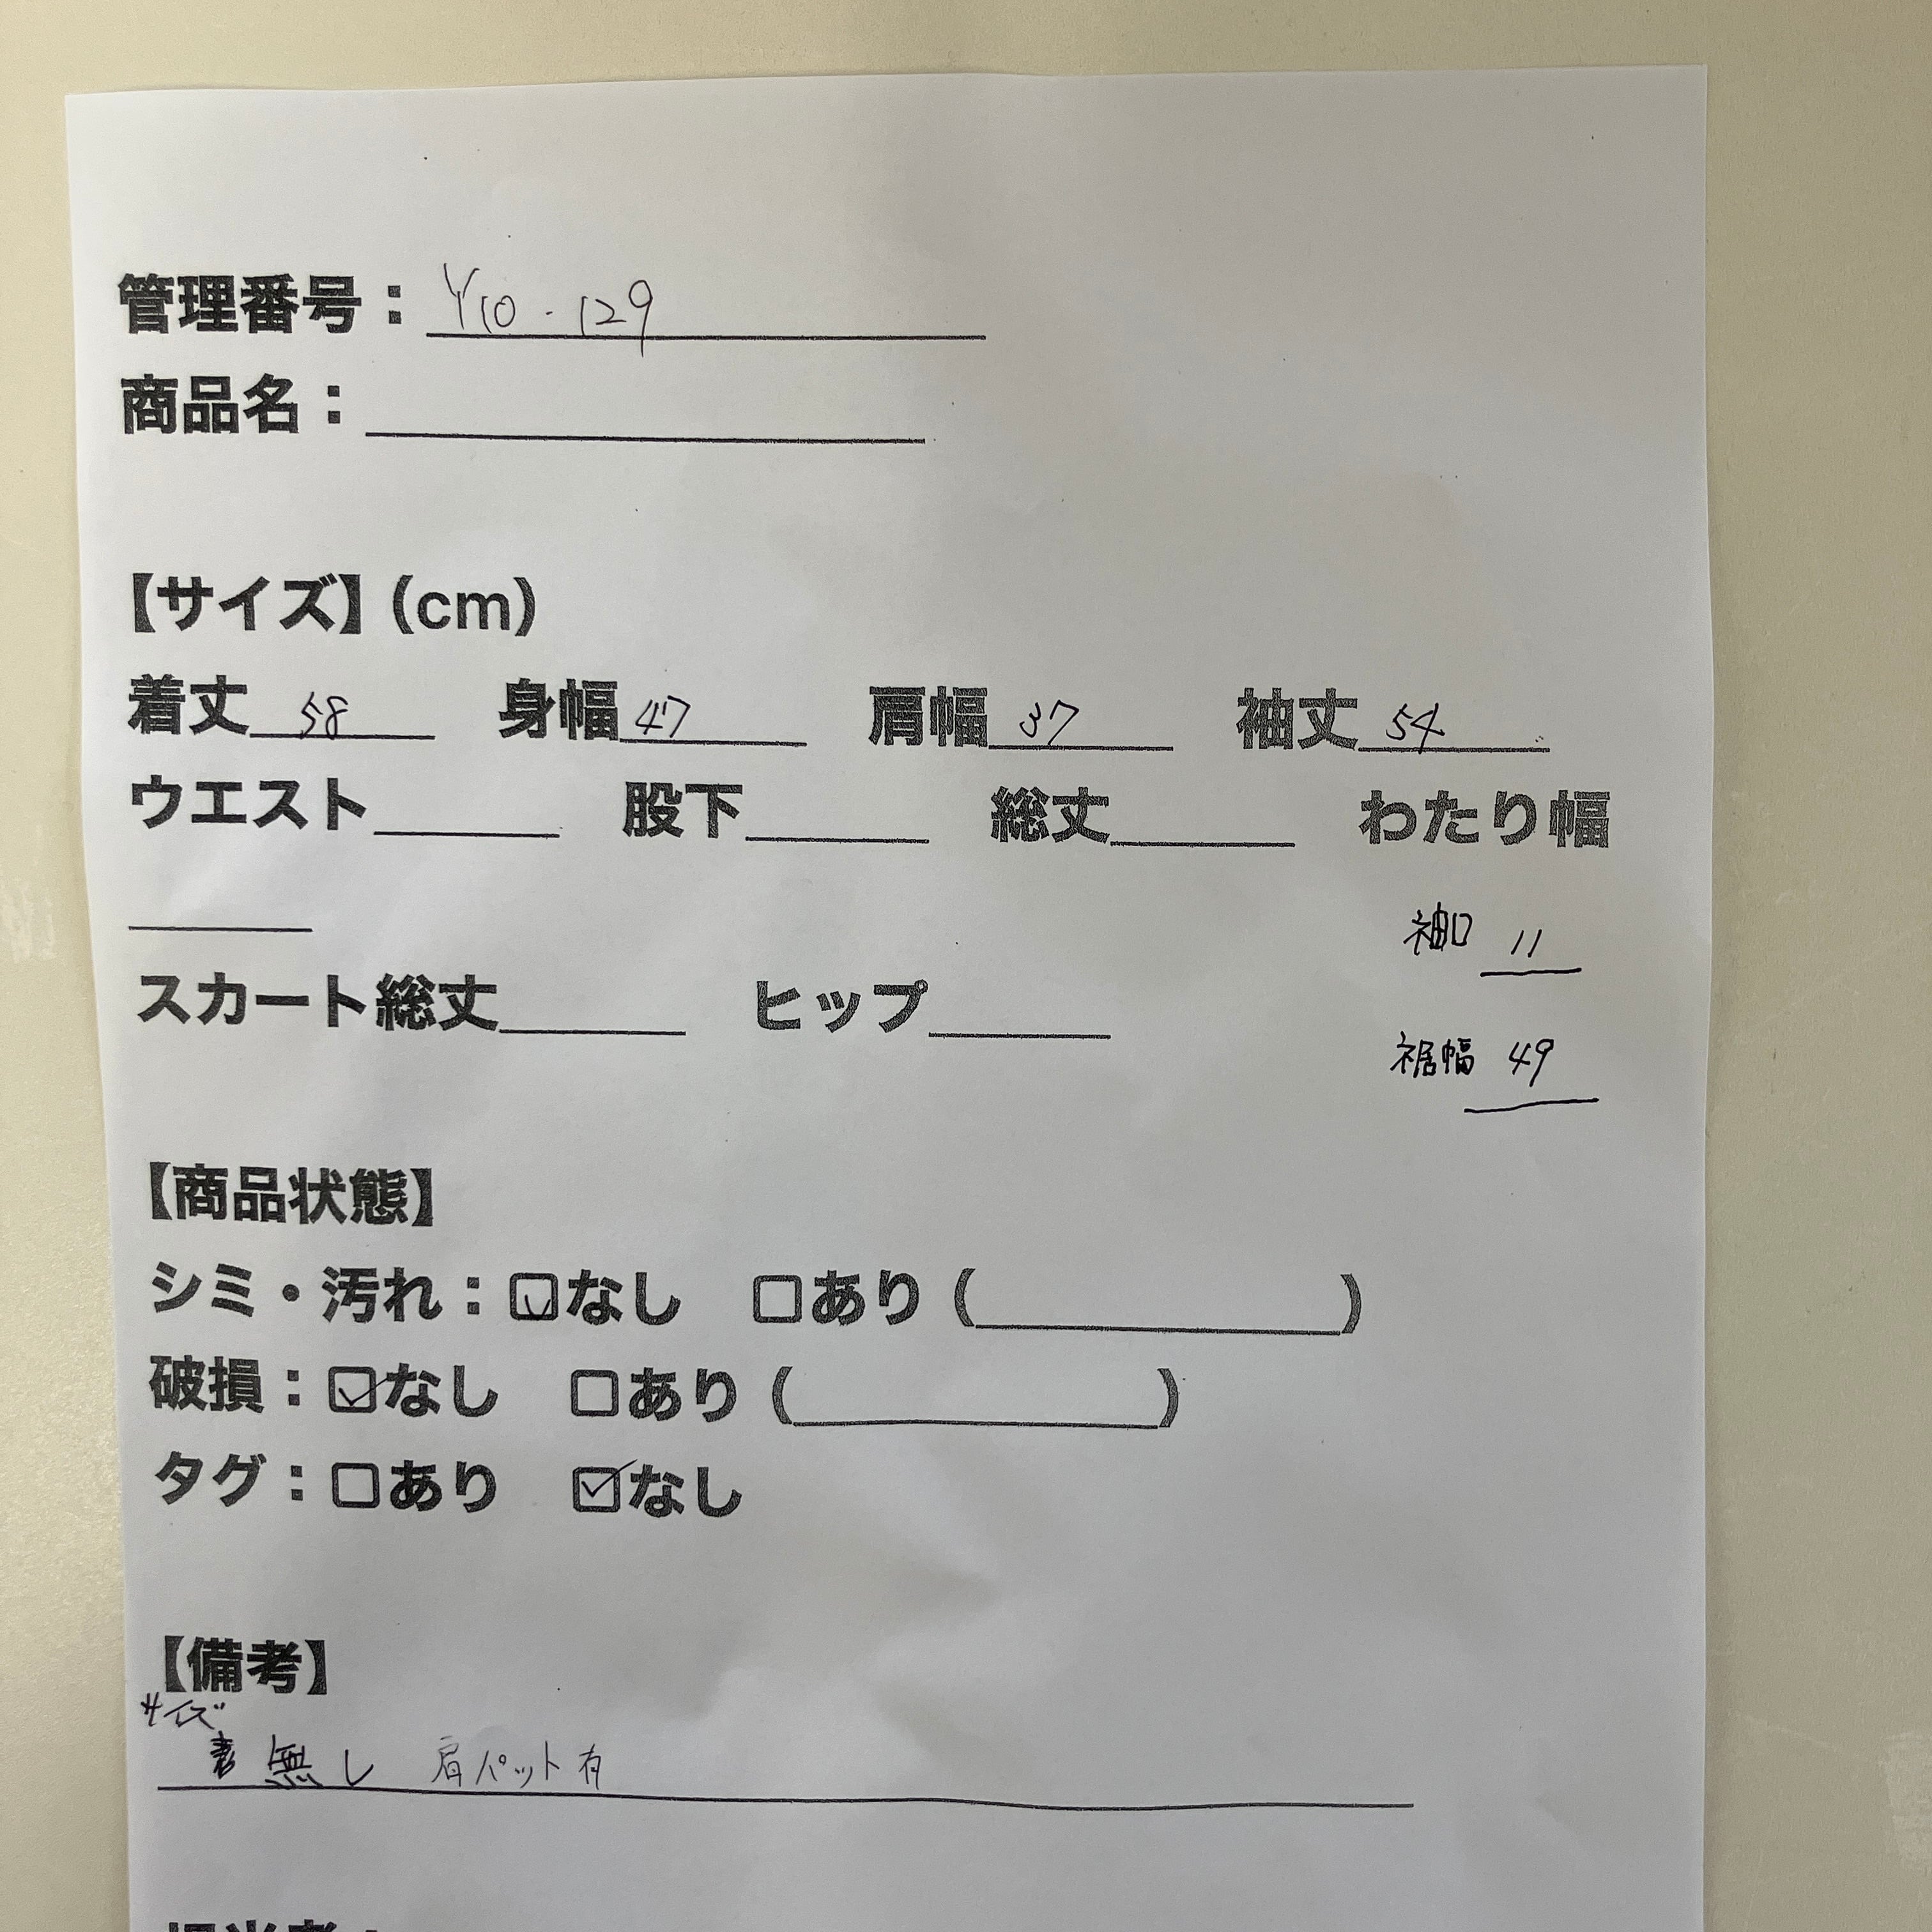 管理番号：Y10-129
商品名：
【サイズ】（cm）
着丈 58 身幅 47 肩幅 37 袖丈 54
ウエスト 股下 総丈 わたり幅
袖口 11
スカート総丈 ヒップ
裾幅 49
【商品状態】
シミ・汚れ：☑なし □あり（ ）
破損：☑なし □あり（ ）
タグ：□あり ☑なし
【備考】
サイズ
無し 肩パット有
担当者：